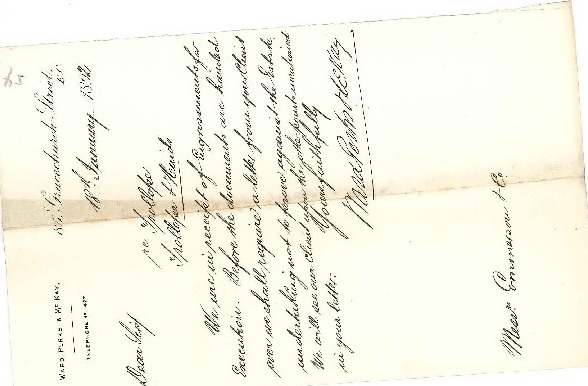 WARD, PERKS & McKAY.
TELEPHONE Nº 477
85, Gracechurch Street,
E.C.
18th January 1892
Dear Sirs
re Trollope
Trollope & Hands
We are in receipt of Engrossments for
Execution. Before the documents are handed
over we shall require a letter from your Client
undertaking not to prove against the Estate.
We will see our Client upon the other points mentioned
in your letter.
Yours faithfully
Ward Perks & McKay
Messrs. Emmerson & Co.